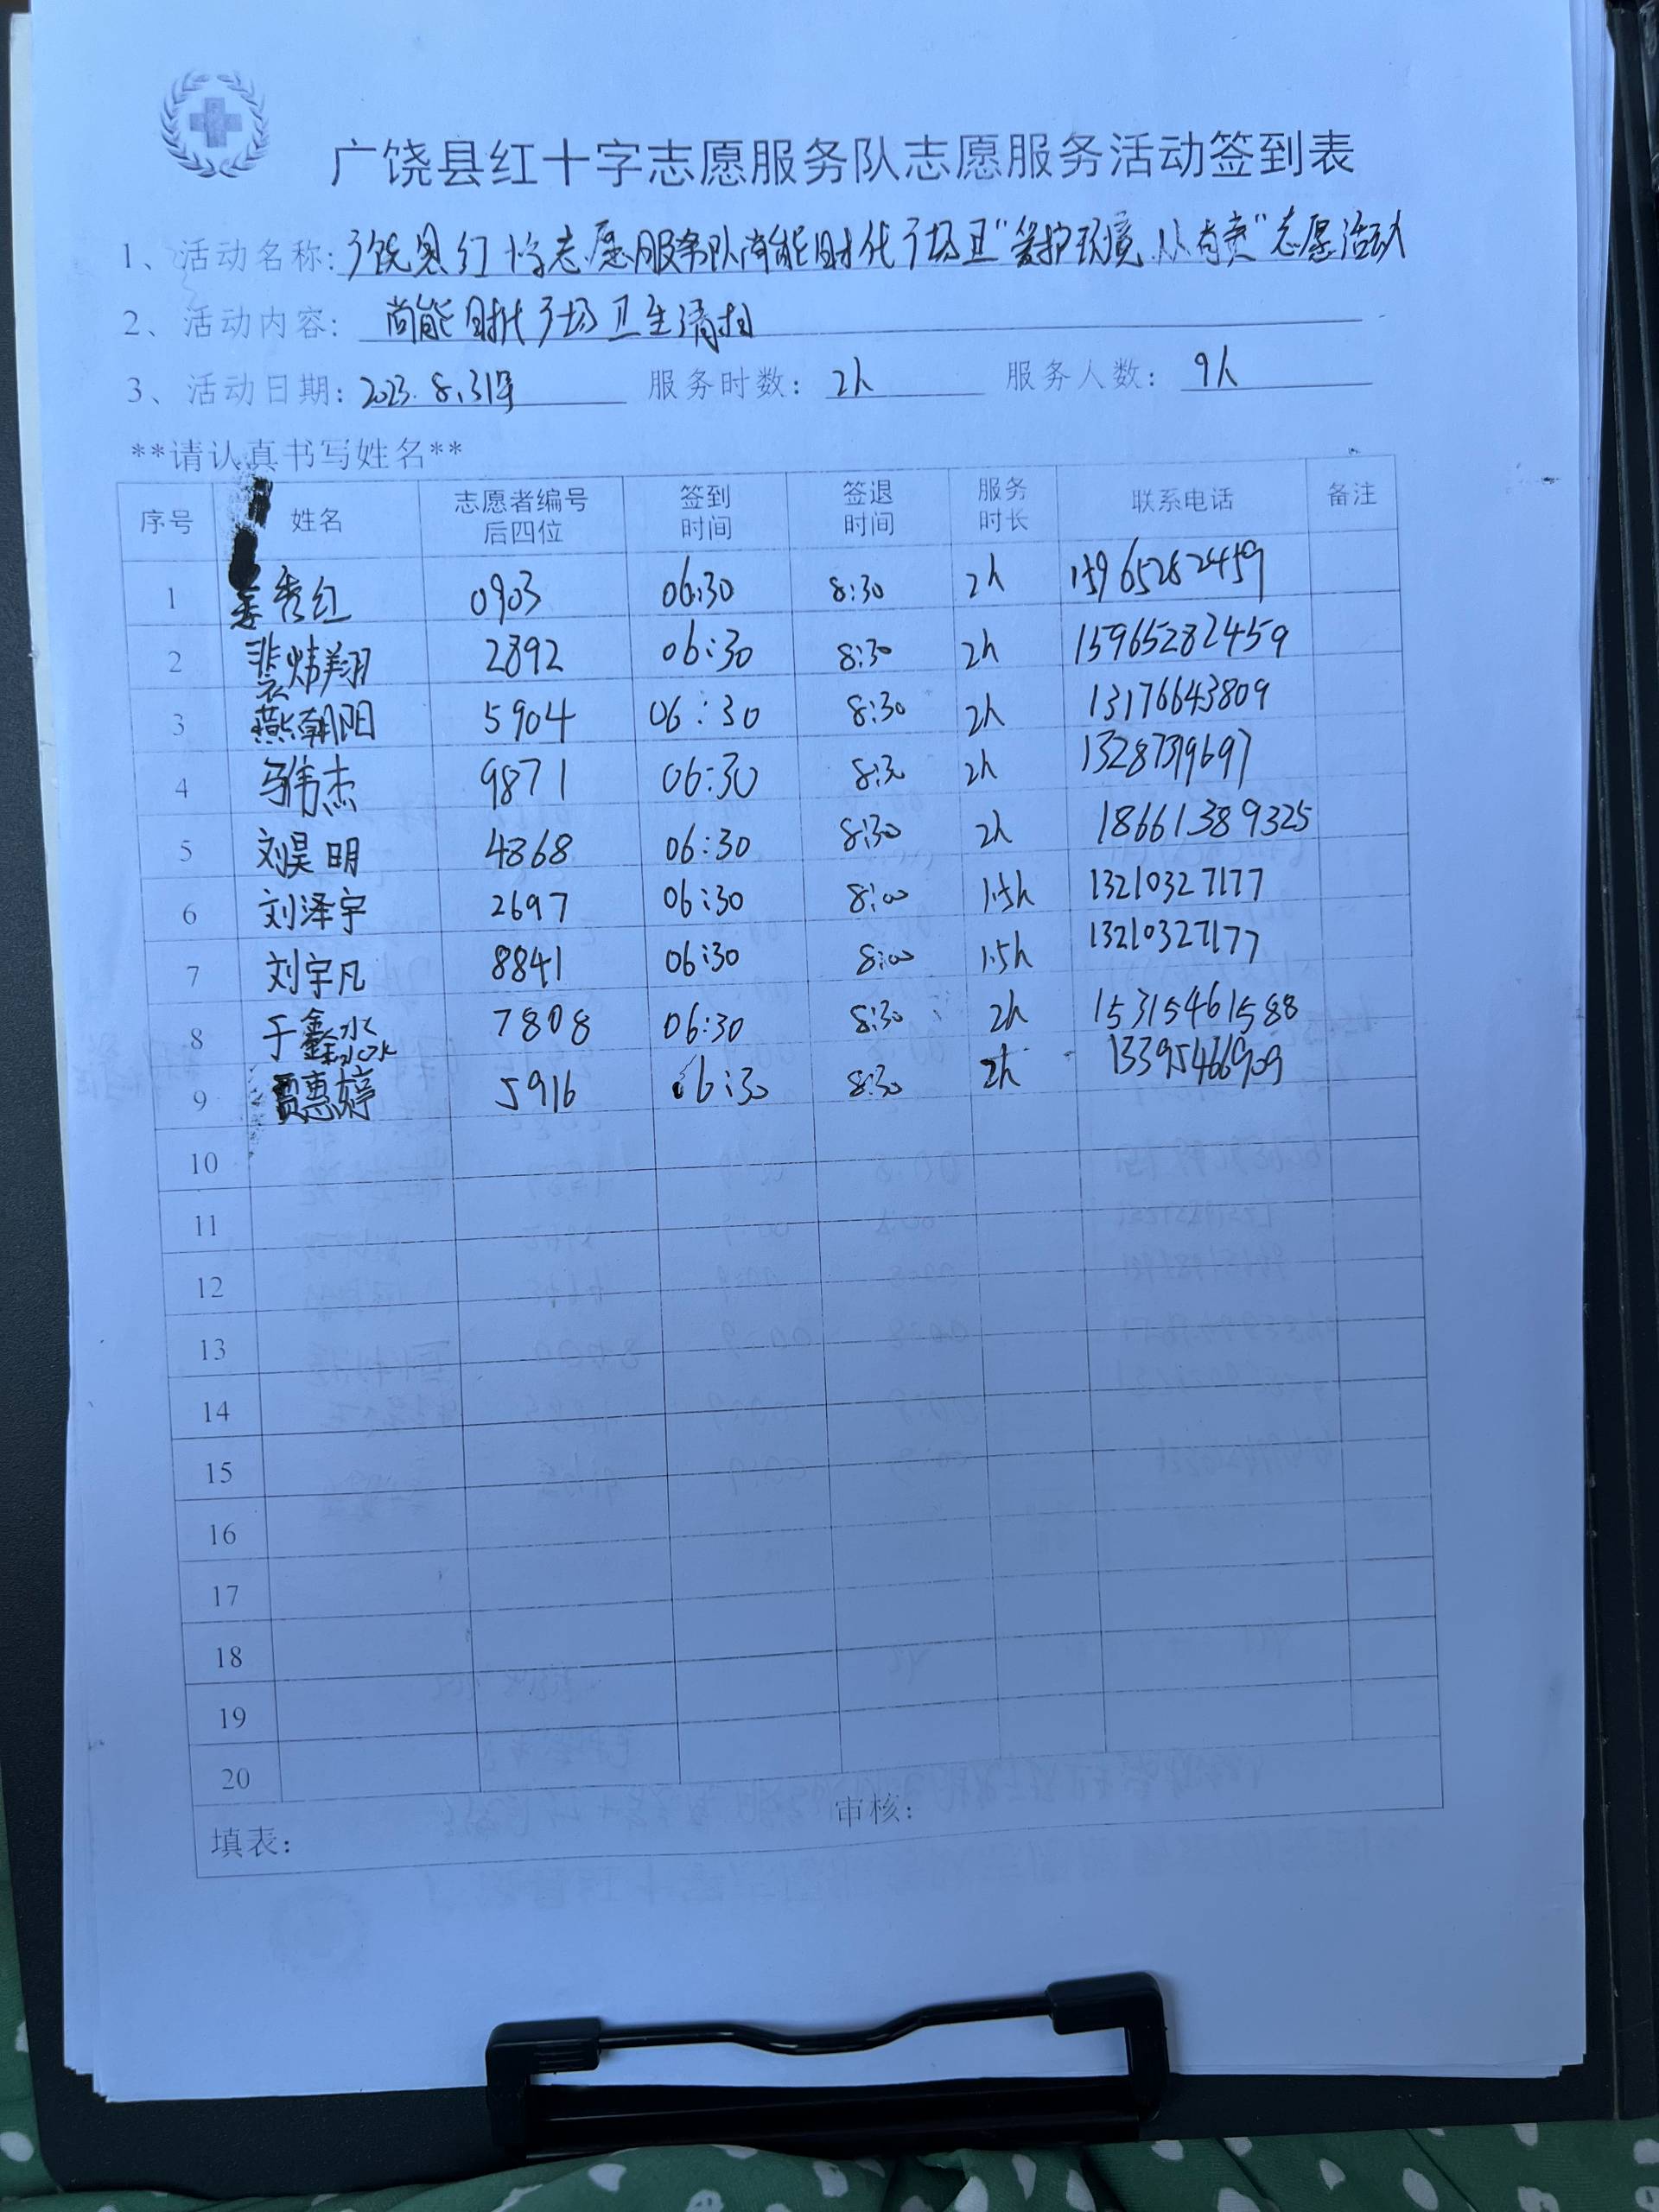 广饶县红十字志愿服务队志愿服务活动签到表
1、活动名称: 广饶县红十字志愿服务队尚能时代广场卫"爱护环境 人人有责"志愿活动
2、活动内容: 尚能时代广场卫生清扫
3、活动日期: 2023.8.31号 服务时数: 2h 服务人数: 9人
**请认真书写姓名**
序号 姓名 志愿者编号后四位 签到时间 签退时间 服务时长 联系电话 备注
1 秀红 0903 06:30 8:30 2h 15965282459
2 裴炜翔 2892 06:30 8:30 2h 15965282459
3 燕朝阳 5904 06:30 8:30 2h 13176643809
4 马伟杰 9871 06:30 8:30 2h
5 刘昊明 4368 06:30 8:30 2h 18661389325
6 刘泽宇 2697 06:30 8:00 1.5h 13210327177
7 刘宇凡 8841 06:30 8:00 1.5h 13210327177
8 于鑫淼 7808 06:30 8:30 2h 15315461588
9 贾惠婷 5916 06:30 8:30 2h 13395466909
10
11
12
13
14
15
16
17
18
19
20
填表: 审核: